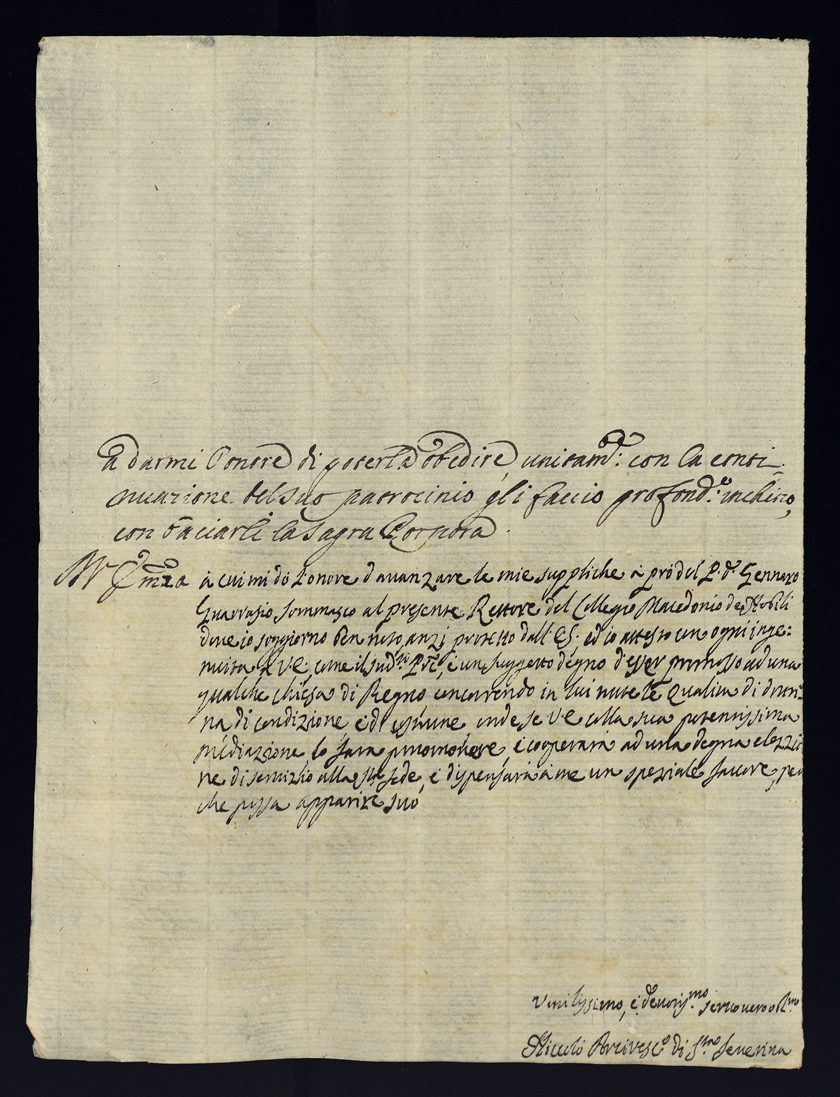 a darmi l'onore di poterla obedire, unitam.te con la conti-
nuazione del suo patrocinio gli faccio profond.o inchino,
con baciarli la sagra Porpora.
à cui mi dò l'onore d'avanzare le mie suppliche à prò del P. d. Gennaro
Guarrasio, Sommasco al presente Rettore del Collegio Macedonio de Nobili
dove io soggiorno ben visto, anzi protetto dall'ES. ed io attesto con ogni inge:
nuità à VE, come il sud.to P. è un suggetto degno d'esser promosso ad una
qualche chiesa di Regno concorrendo in lui tutte le qualità di dottri-
na di condizione e di costume onde se VE colla sua potentissima
mediazione lo farà promovere, e coopererà ad una degna elezzio
ne di servizio alla S. sede, e dispenserà à me un speziale favore, per
che possa apparire suo
Umilissimo, e devotis.mo servo vero obl.mo
Niccolò Arcivesc.o di S.ta Severina